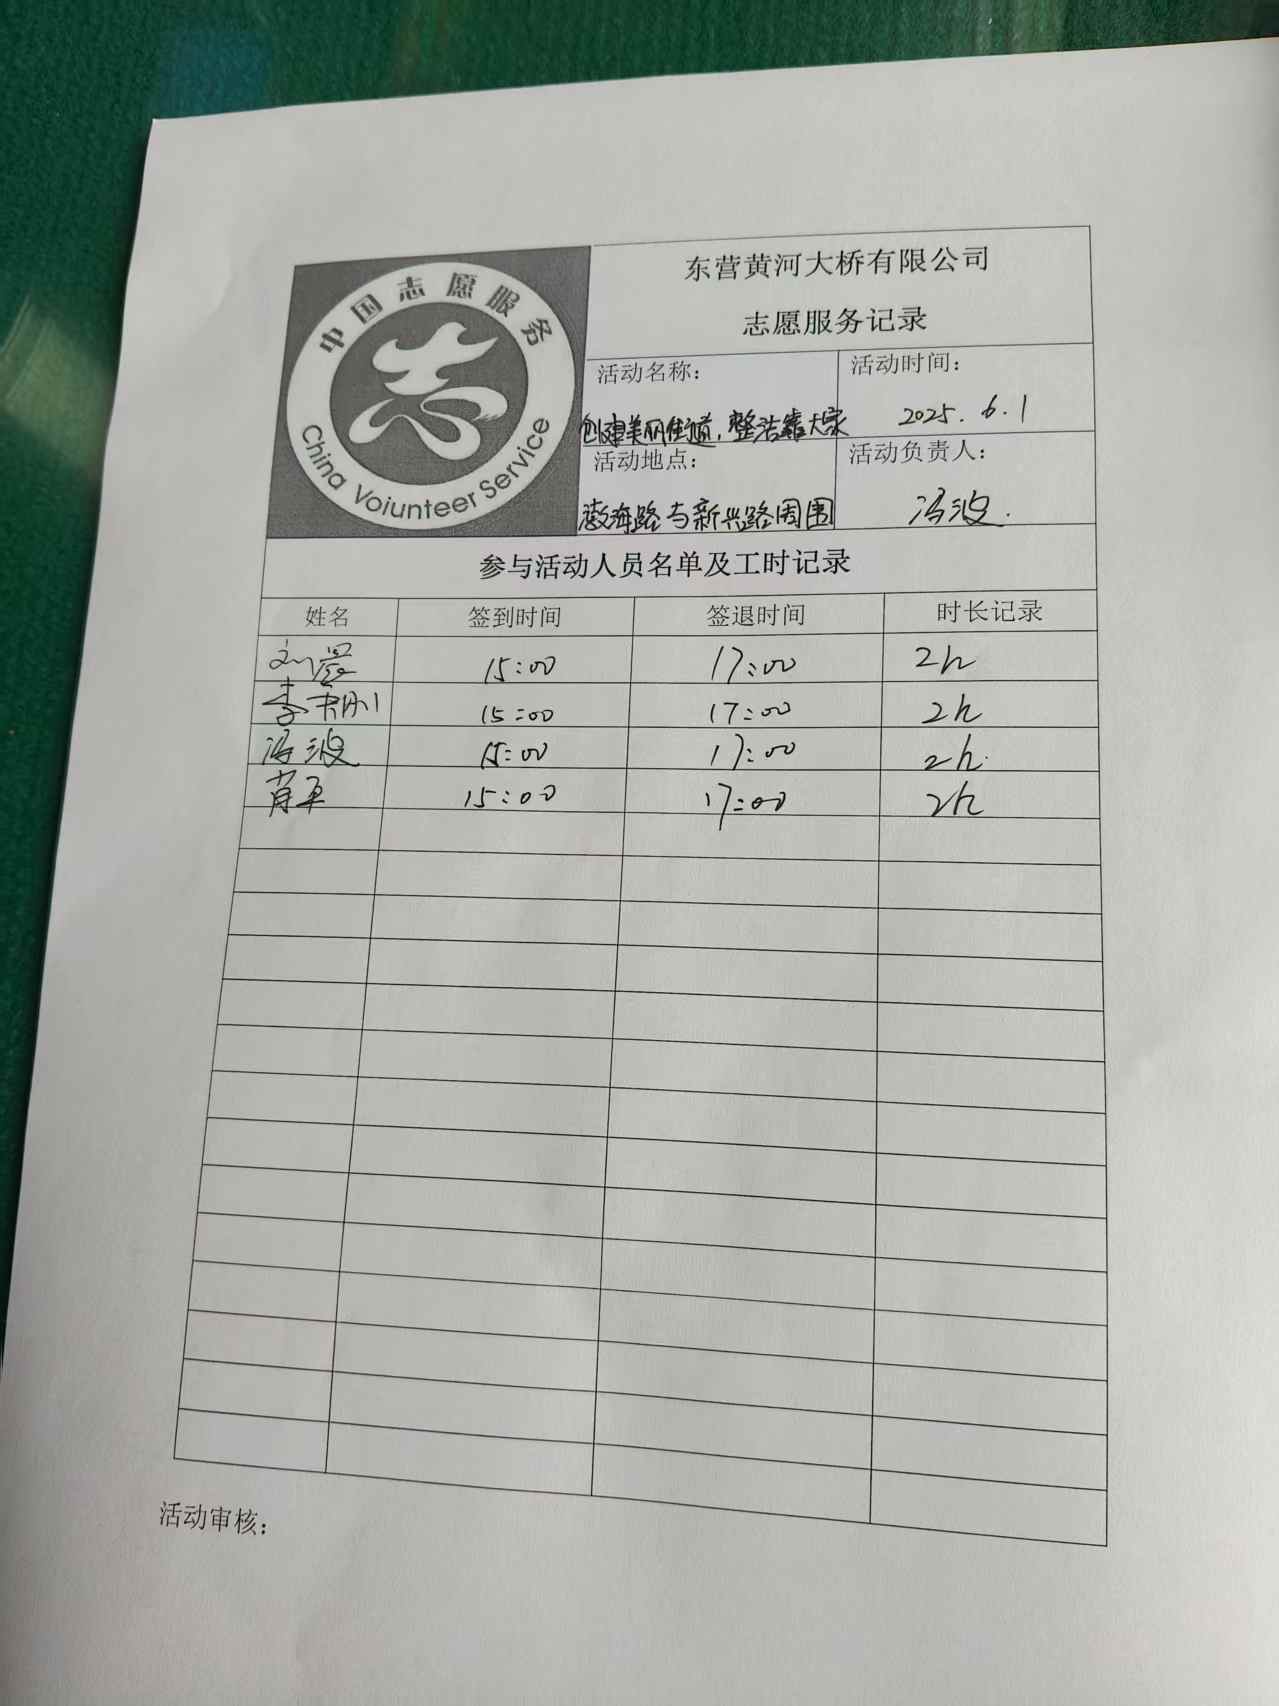 中国志愿服务
China Voiunteer Service
东营黄河大桥有限公司
志愿服务记录
活动名称：
创建美丽街道，整洁靠大家
活动时间：
2025.6.1
活动地点：
渤海路与新兴路周围
活动负责人：
冯波.
参与活动人员名单及工时记录
姓名 签到时间 签退时间 时长记录
刘 15:00 17:00 2h
李 15:00 17:00 2h
冯波 15:00 17:00 2h.
肖军 15:00 17:00 2h
活动审核：